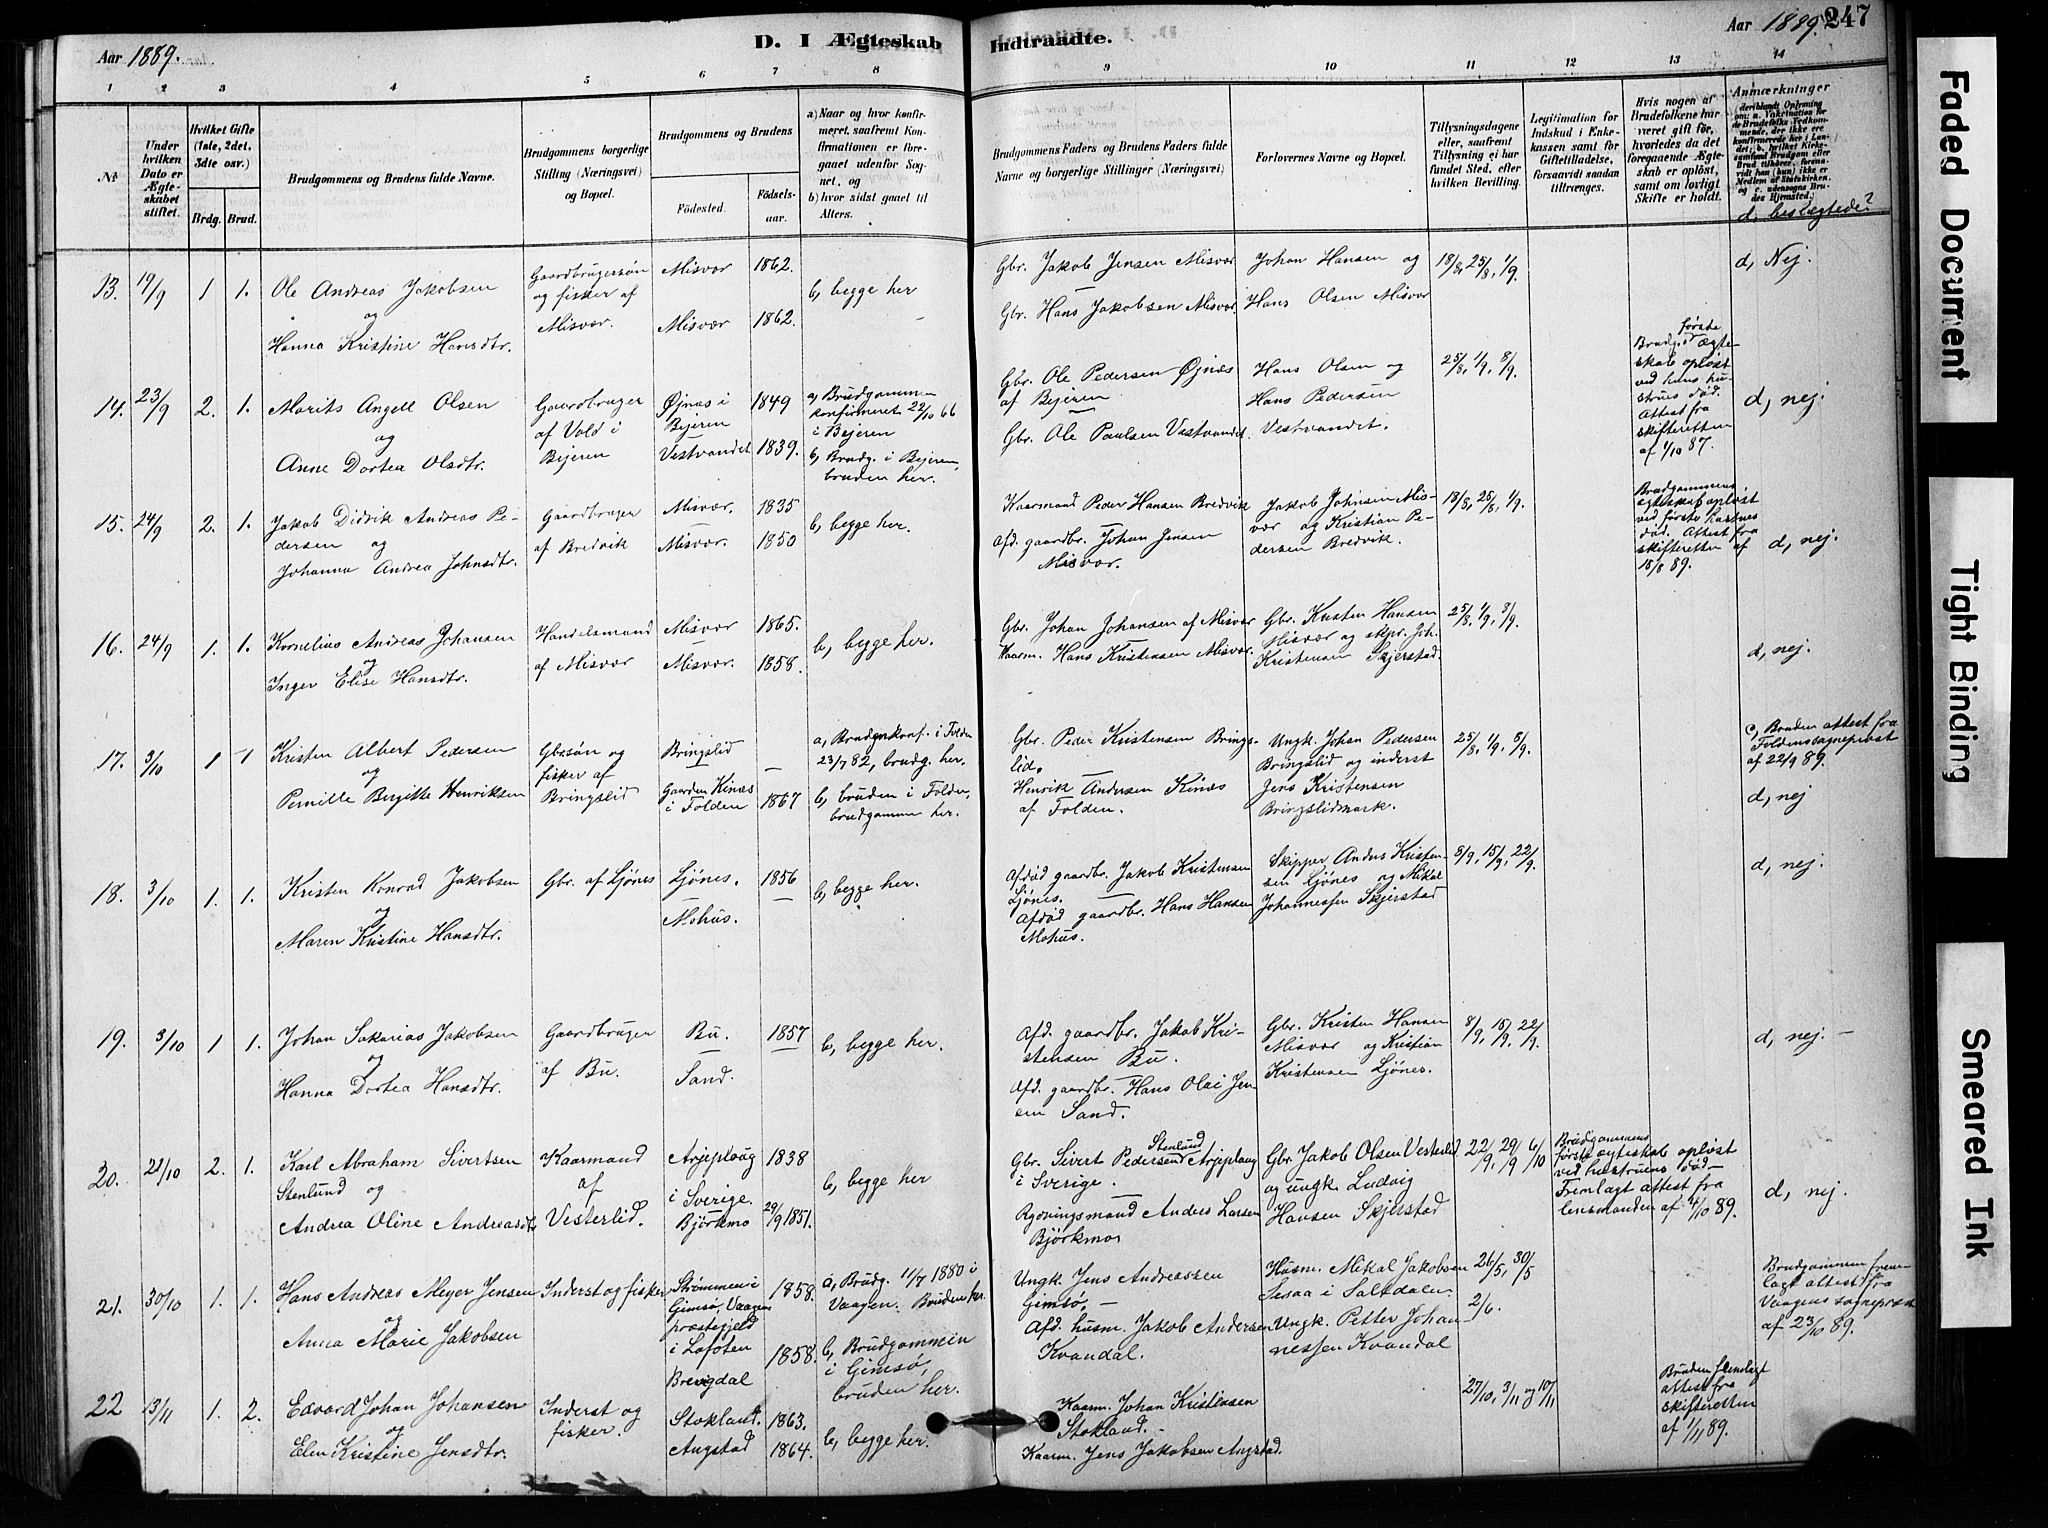 Aar 1889.
D. I Ægteskab Indtraadte.
Aar 1889. 247
1 2 3 4 5 6 7 8 9 10 11 12 13 14
No.
Under hvilken Dato er Ægteskabet stiftet.
Hvilket Gifte (1ste, 2det, 3dte osv.)
Brdg. Brud.
Brudgommens og Brudens fulde Navne.
Brudgommens borgerlige Stilling (Næringsvei) og Bopæl.
Brudgommens og Brudens
Födested.
Födselsaar.
a) Naar og hvor konfirmeret, saafremt Konfirmationen er foregaaet udenfor Sognet, og
b) hvor sidst gaaet til Alters.
Brudgommens Faders og Brudens Faders fulde Navne og borgerlige Stillinger (Næringsvei)
Forlovernes Navne og Bopæl.
Tillysningsdagene eller, saafremt Tillysning ei har fundet Sted, efter hvilken Bevilling.
Legitimation for Indskud i Enkekassen samt for Giftetilladelse, forsaavidt saadan tiltrænges.
Hvis nogen af Brudefolkene har været gift för, hvorledes da det foregaaende Ægteskab er oplöst, samt om lovligt Skifte er holdt.
Anmærkninger
(deriblandt Oplysning om: a. Vakcination for de Brudefolks Vedkommende, der ikke ere konfirmerede her i Landet; b. hvilket Kirkesamfund Brudgom eller Brud tilhörer, forsaavidt han (hun) ikke er Medlem af Statskirken, og c. udensogns Brudes Hjemsted.)
d, beslægtede?
13. 19/9 1 1. Ole Andreas Jakobsen og Hanna Kristine Hansdtr.
Gaardbrugersøn og fisker af Misvær.
Misvær 1862.
Misvær 1862.
b, begge her
Gbr. Jakob Jensen Misvær
Gbr. Hans Jakobsen Misvær
Johan Hansen og Hans Olsen Misvær
18/8, 25/8, 1/9
d, Nej.
14. 23/9 2. 1. Marits Angell Olsen og Anne Dortea Olsdtr.
Gaardbruger af Vold i Bejeren
Øjnæs i Bejeren 1849
Vestvandet 1839.
a, Brudgommen konfirmeret 22/10 66 i Bejeren
b, Brudg. i Bejeren, bruden her.
Gbr. Ole Pedersen Øjnæs af Bejeren
Gbr. Ole Paulsen Vestvandet.
Hans Olsen og Hans Pedersen Vestvandet.
25/8, 1/9, 8/9
Brudg. første ægteskab opløst ved hans hustrues död. Attest fra skifteretten af 1/10 87.
d, nej.
15. 24/9 2. 1. Jakob Didrik Andreas Pedersen og Johanna Andrea Johnsdtr.
Gaardbruger af Bredvik
Misvær. 1835
Misvær. 1850
b, begge her.
Kaarmand Peder Hansen Bredvik
Afd. gaardbr. Johan Jensen Misvær.
Jakob Johnsen Misvær og Kristian Pedersen Bredvik.
18/8, 25/8, 1/9.
Brudgommens egteskab opløst ved første hustrues död. Attest fra skifteretten af 18/8 89.
d, nej.
16. 24/9 1. 1. Kornelius Andreas Johansen og Inger Elise Hansdtr.
Handelsmand af Misvær
Misvær 1865.
Misvær. 1858.
b, begge her.
Gbr. Johan Johansen af Misvær
Kaarm. Hans Kristensen Misvær.
Gbr. Kristen Hansen Misvær og skpr. Joh. Kristensen Skjerstad.
25/8, 1/9, 8/9.
d, nej.
17. 3/10 1 1 Kristen Albert Pedersen og Pernille Bergitte Henriksen
Gbrsøn og fisker af Bringslid
Bringslid —
Gaarden Kinæs i Folden 1867
a, Bruden konf. i Folden 23/7 82, brudg. her.
b, bruden i Folden, brudgommen her.
Gbr. Peder Kristensen Bringslid.
Henrik Andersen Kinæs af Folden.
Ungk. Johan Pedersen Bringslid og inderst Jens Kristensen Bringslidmark.
25/8, 1/9, 5/9.
c, Bruden attest fra Foldens sognepræst af 22/9 89.
d, nej
18. 3/10 1. 1. Kristen Konrad Jakobsen og Maren Kristine Hansdtr.
Gbr. af Ljönes
Ljönes. 1856
Mohus. —
b, begge her.
Afdöd gaardbr. Jakob Kristensen Ljönes.
Afdöd gaardbr. Hans Hansen Mohus.
Skipper Anders Kristensen Ljönes og Mikal Johannessen Skjerstad
8/9, 15/9, 22/9.
d, nej.
19. 3/10 1 1. Johan Sakarias Jakobsen og Hanna Dortea Hansdtr.
Gaardbruger af Bu.
Bu. 1857
Sand. —
b, begge her.
Afd. gaardbr. Jakob Kristensen Bu.
Afd. gaardbr. Hans Olai Jensen Sand.
Gbr. Kristen Hansen Misvær og Kristian Kristensen Ljönes.
8/9, 15/9, 22/9.
d, nej. —
20. 22/10 2. 1. Karl Abraham Sivertsen Stenlund og Andrea Oline Andreasdtr
Kaarmand af Vesterlid.
Arjeploug i Sverige. 1838
Björkmo 29/9 1851.
b, begge her
Gbr. Sivert Pedersen Stenlund Arjeploug i Sverige.
Rydningsmand Anders Larsen Björkmo
Gbr. Jakob Olsen Vesterlid og ungk. Ludvig Hansen Skjerstad
22/9, 29/9 6/10
Brudgommens første egteskab opløst ved hustruens död — Fremlagt attest fra lensmanden af 4/10 89.
d, nej.
21. 30/10 1. 1. Hans Andreas Meyer Jensen og Anna Marie Jakobsen
Inderst og fisker
Strømmen i Gimsø, Vaagen præstegjeld i Lofoten 1858.
Brengdal 1858.
a, Brudg. 11/7 1880 i Vaagen. Bruden her.
b, Brudgommen i Gimsø, bruden her.
Ungk. Jens Andreassen Gimsø, —
Afd. husm. Jakob Andersen Kvandal.
Husm. Mikal Jakobsen Sesaa i Saltdalen.
Ungk. Petter Johannessen Kvandal
26/5, 30/5 2/6.
Brudgommen fremlagt attest fra Vaagens sognepræst af 23/10 89.
22 13/11 1. 2. Edvard Johan Johansen og Elen Kristine Jensdtr.
Inderst og fisker.
Stokland. 1863.
Angstad 1864.
b, begge her.
Kaarm. Johan Kristensen Stokland. —
Kaarm. Jens Jakobsen Angstad.
27/10, 3/11 og 10/11
Bruden fremlagt attest fra skifteretten af 1/11 89.
Faded Document
Tight Binding
Smeared Ink